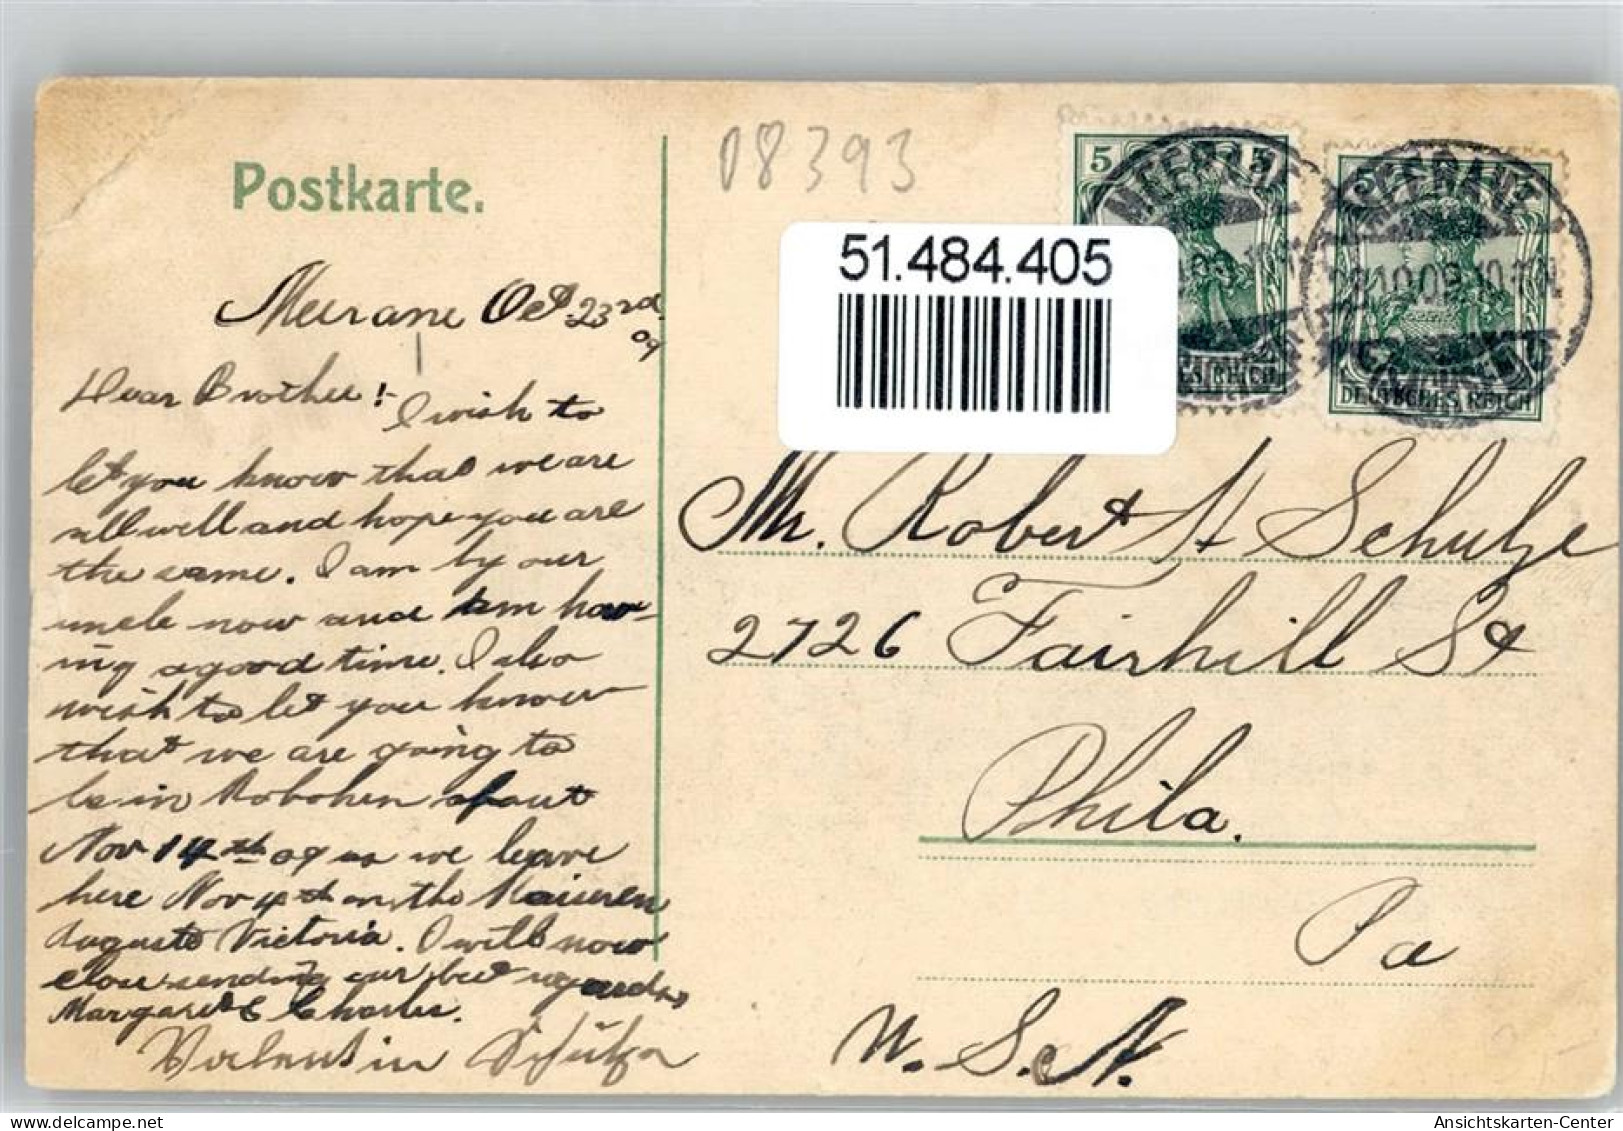 Postkarte.
08393
51.484.405
5 5
MEERANE
DEUTSCHES REICH
5
MEERANE
DEUTSCHES REICH
Meerane Oct. 23rd
09
Dear Brother!- I wish to
let you know that we are
all well and hope you are
the same. I am by our
uncle now and am hav-
ing a good time. I also
wish to let you know
that we are going to
be in Hoboken about
Nov 14th 09 as we leave
here Nov 4th on the Kaiseren
Auguste Victoria. I will now
close sending our best regards,
Margaret & Charles.
Mr. Robert H Schulze
2726 Fairhill St
Phila.
Pa
U.S.A.
Ansichtskarten-Center